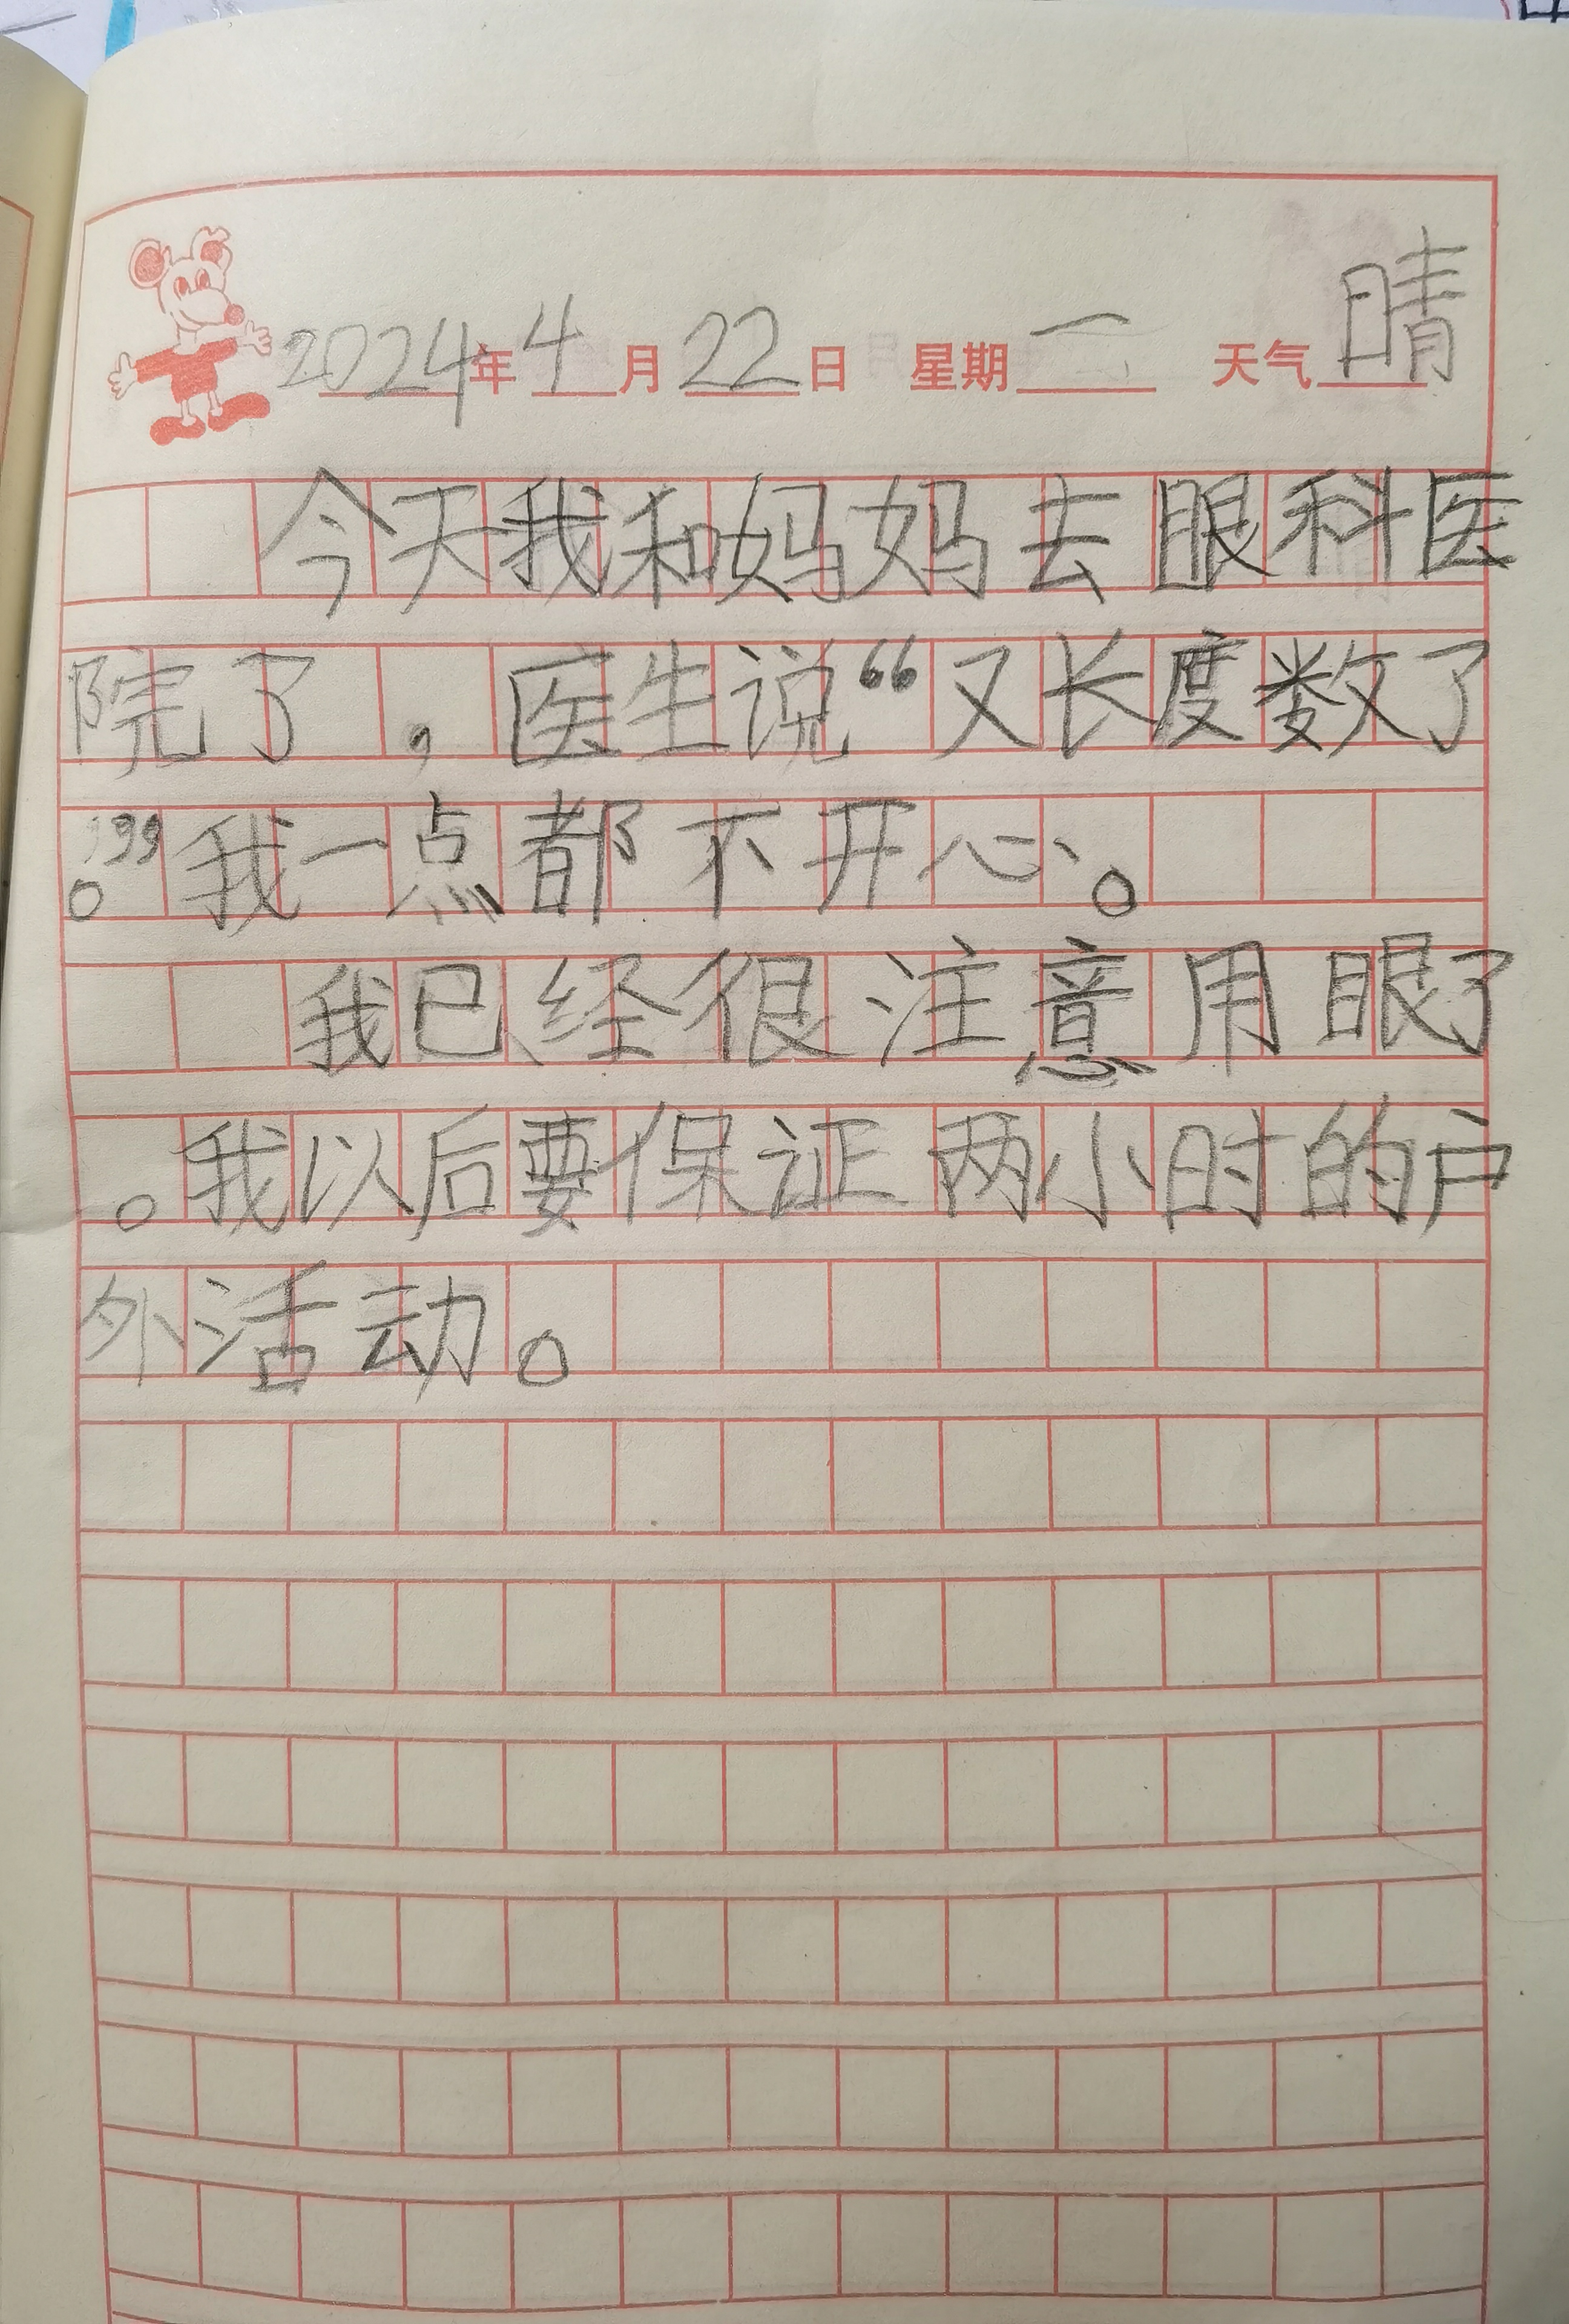 2024年4月22日 星期一 天气晴
今天我和妈妈去眼科医
院了，医生说“又长度数了
。”我一点都不开心。
我已经很注意用眼了
。我以后要保证两小时的户
外活动。